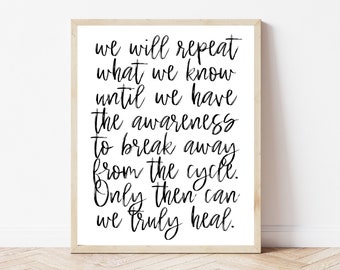 we will repeat
what we know
until we have
the awareness
to break away
from the cycle.
Only then can
we truly heal.